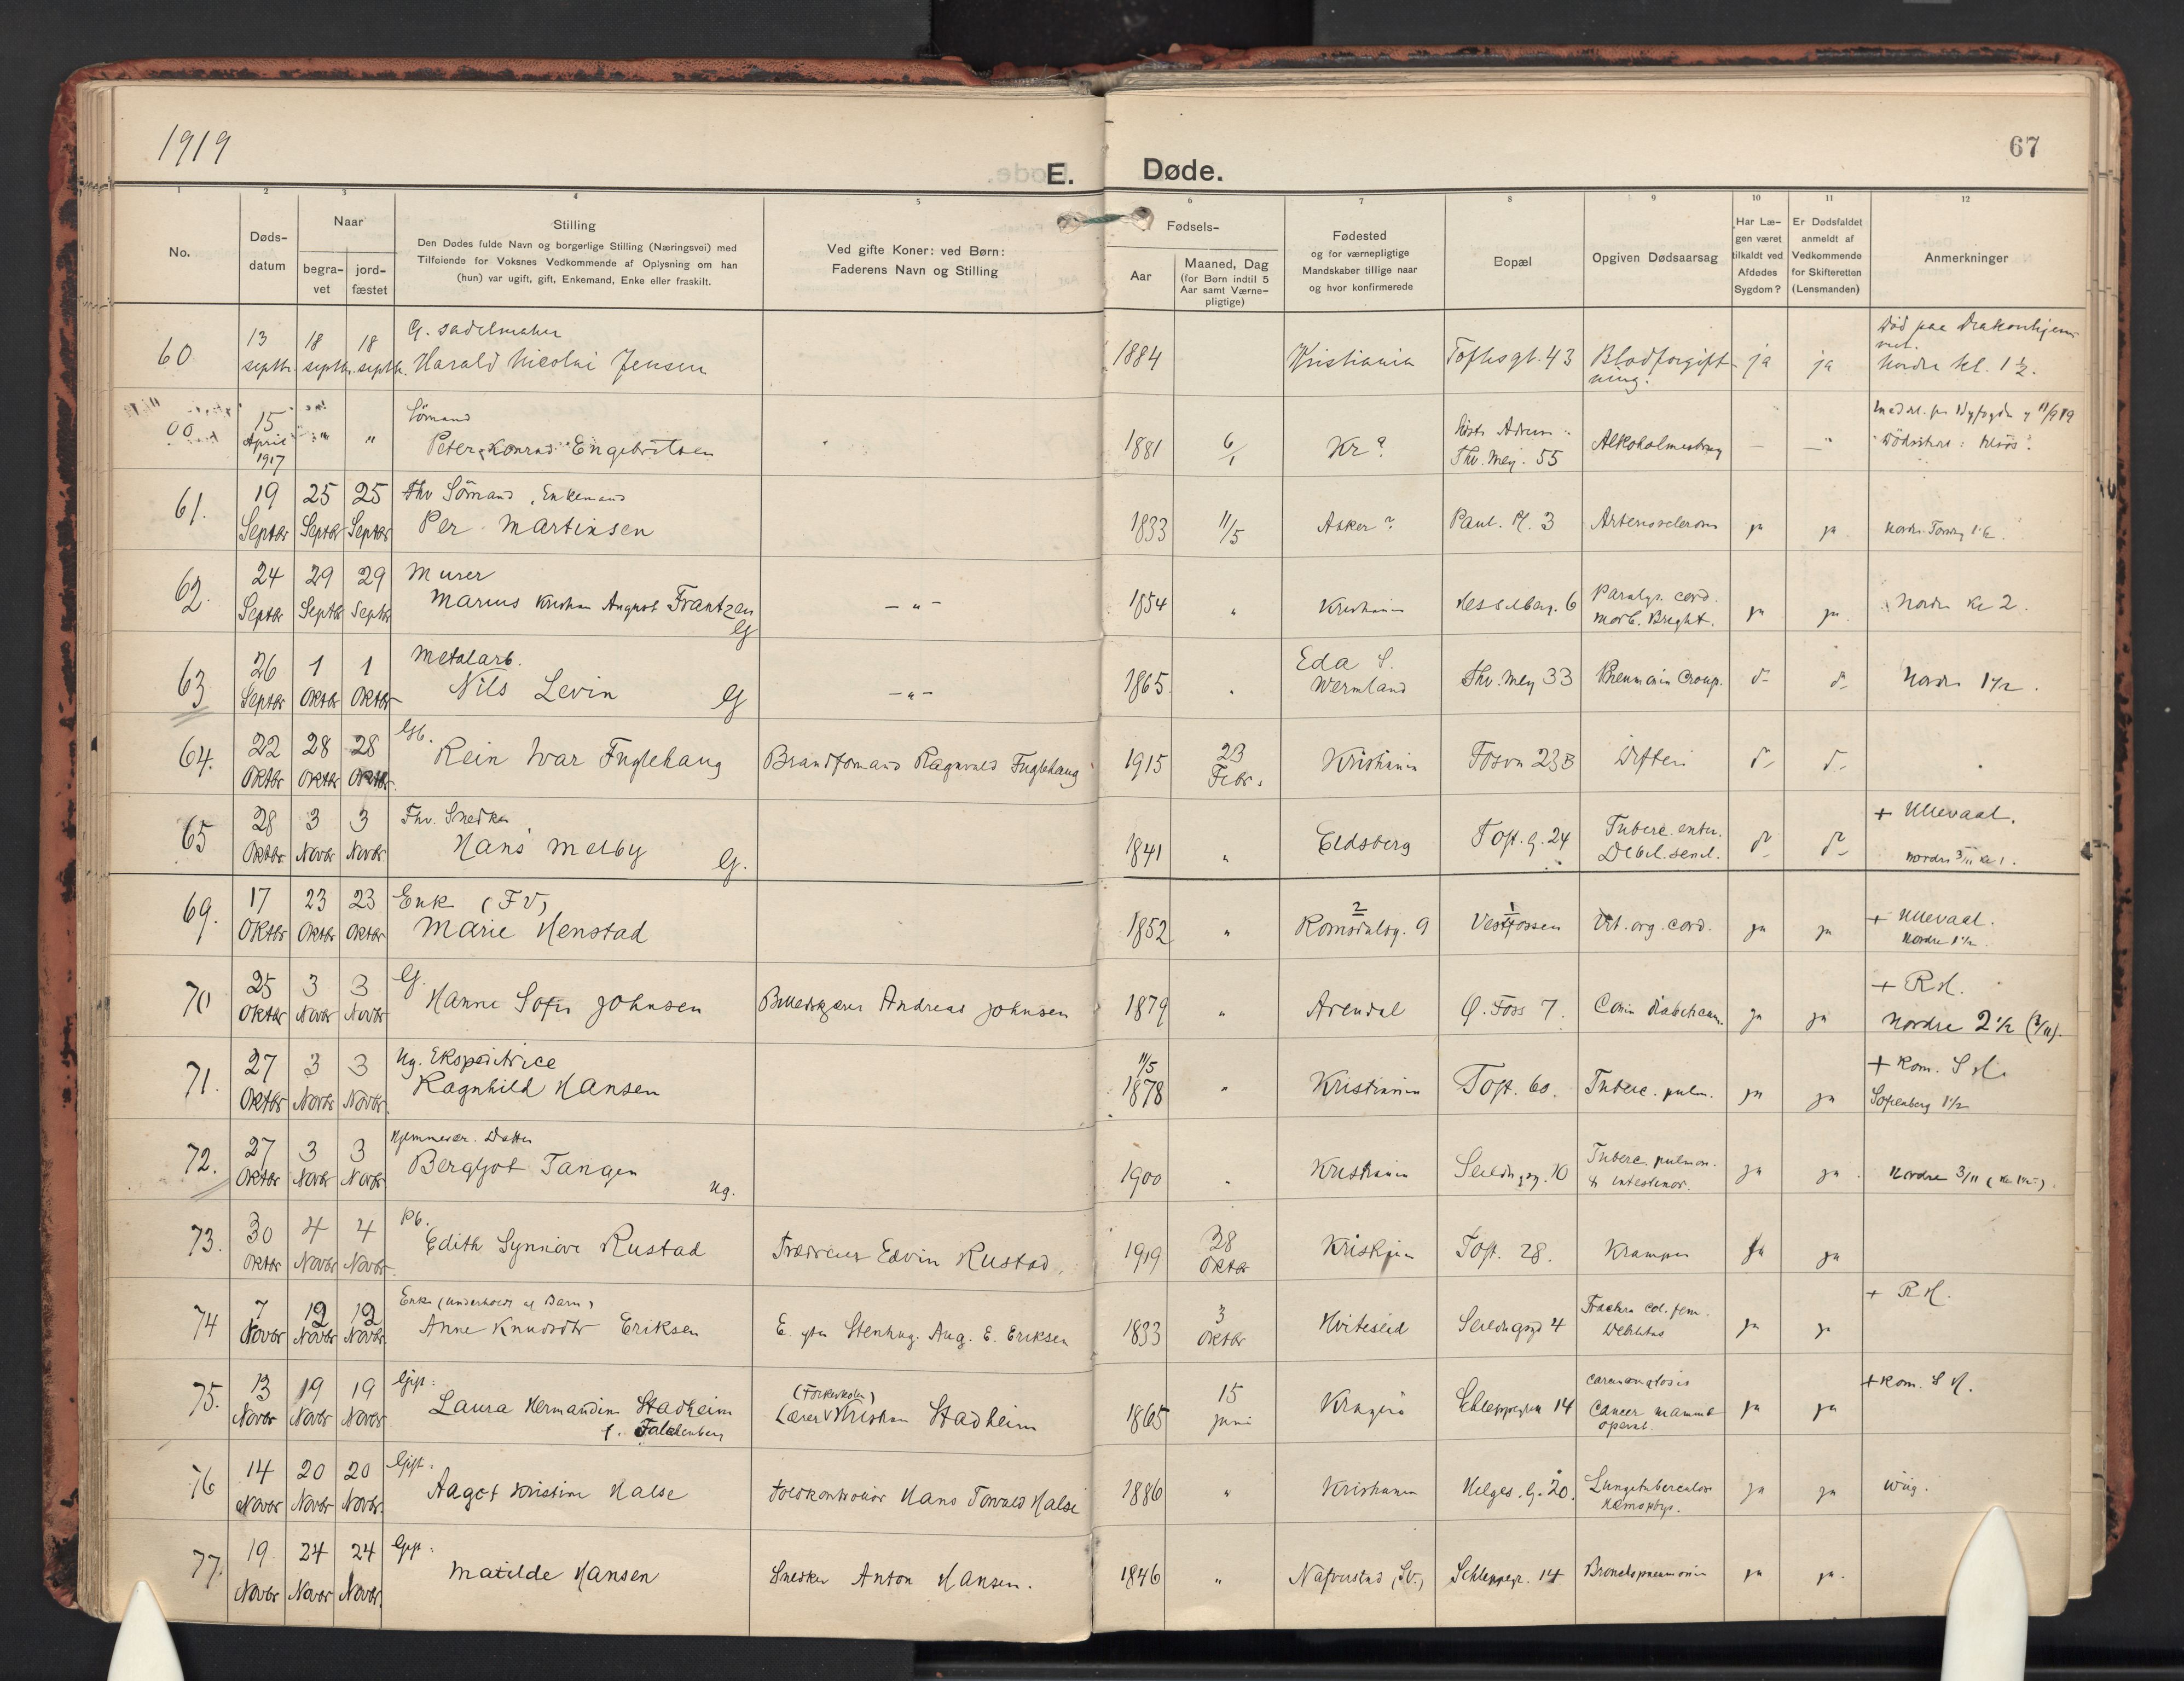 1919
67
E. Døde.
1 2 3 4 5 6 7 8 9 10 11 12
No.
Døds-
datum
Naar
begra-
vet
jord-
fæstet
Stilling
Den Dødes fulde Navn og borgerlige Stilling (Næringsvei) med
Tilføiende for Voksnes Vedkommende af Oplysning om han
(hun) var ugift, gift, Enkemand, Enke eller fraskilt.
Ved gifte Koner: ved Børn:
Faderens Navn og Stilling
Fødsels-
Aar
Maaned, Dag
(for Børn indtil 5
Aar samt Værne-
pligtige)
Fødested
og for værnepligtige
Mandskaber tillige naar
og hvor konfirmerede
Bopæl
Opgiven Dødsaarsag
Har Læ-
gen været
tilkaldt ved
Afdødes
Sygdom?
Er Dødsfaldet
anmeldt af
Vedkommende
for Skifteretten
(Lensmanden)
Anmerkninger
60 13 septbr. 18 septbr. 18 septbr.
G. sadelmaker
Harald Nicolai Jensen
1884 Kristiania Toftesgt. 43 Blodforgift-
ning. ja ja
Død paa Diakonhjem-
met.
Nordre kl. 1 ½.
00 15 April 1917 " "
Sömand
Peter Konrad Engebritsen
1881 6/1 Kr? Sidste Adresse:
Thv. Mey. 55
— —
61. 19 Septbr 25 Septbr 25 Septbr
Fhv Sömand, Enkemand
Per Martinsen
1833 11/5 Asker? Paul. Pl. 3 ja ja
62. 24 Septbr 29 Septbr 29 Septbr
Murer
Marius Kristian August Frantzen
G
— " —
1854 " Kristiania Hesselberg. 6
Paralys. cord.
morb. Bright. ja ja. Nordre Kl 2.
63 26 Septbr 1 Oktbr 1 Oktbr
Metalarb.
Nils Levin G
— " —
1865 " Eda S.
Wermland Thv. Mey 33 Pneumonia Croup. d— d— Nordre 1 1/2.
64. 22 Oktbr 28 Oktbr 28 Oktbr
Rein Ivar Fuglehaug
Brandformand Ragnvald Fuglehaug
1915 23 Febr. Kristiania Fosvn 23B Difteri d— d—
65 28 Oktbr 3 Novbr 3 Novbr
Fhv. Snedker
Hans Melby G.
1841 " Eidsberg Toft. g. 24
Tuberc. enter.
Debil. senil. d— d—
+ Ullevaal.
Nordre 3/11 kl 1.
69. 17 Oktbr 23 Oktbr 23 Oktbr
Enke (FV)
Marie Henstad
1852 " 2 Romsdalsg. 9 1 Vestfossen Vit. org. cord. ja ja
+ Ullevaal.
Nordre 1 1/2
70 25 Oktbr 3 Novbr 3 Novbr
G.
Hanne Sofie Johnsen
Billedskjærer Andreas Johnsen
1879 " Arendal Ø. Foss 7. Coma diabeticum. ja ja
+ R.H.
Nordre 2 1/2 (3/11).
71. 27 Oktbr 3 Novbr 3 Novbr.
Ug. Ekspeditrice
Ragnhild Hansen
11/5
1878 " Kristiania Toft. 60. Tuberc. pulm. ja ja
+ Kom. S H.
Sofienberg 1 1/2
72. 27 Oktbr 3 Novbr 3 Novbr
Hjemmevær. Datter
Bergljot Tangen
Ug.
1900 Kristiania Seildugsg. 10
Tuberc. pulmon.
& intestinor. ja ja.
Nordre 3/11
73. 30 Oktbr 4 Novbr 4 Novbr.
Edith Synnöve Rustad
Trædreier Edvin Rustad.
1919 28 Oktbr Kristania Toft. 28. Kramper ja ja
74 7 Novbr 12 Novbr 12 Novbr.
Enke (underholdt af Barn)
Anne Knudsdtr Eriksen
E. efter Stenhug. Aug. E. Eriksen
1833 3 Oktbr Hviteseid Seildugsgd 4
Fractura col. fem.
Debilitas ja ja
+ R H.
75. 13 Novbr 19 Novbr 19 Novbr.
Gift:
Laura Hermandine Stadheim
f. Falckenberg
(Folkeskolen)
Lærer Kristian Stadheim
1865 15 Juni Kragerö Schleppegrels 14
Carcinomatosis
Cancer mammæ
operat. ja ja
+ Kom. S H.
76 14 Novbr 20 Novbr 20 Novbr.
Gift:
Aagot Kristine Halse
Toldkontrollör Hans Torvald Halse
1886 " Kristiania Helges. g. 20.
Lungetuberculose
Hæmoptys. ja ja Wiig.
77. 19 Novbr 24 Novbr 24 Novbr.
Gift:
Matilde Hansen
Snedker Anton Hansen.
1846 " Nafverstad (Sv.) Schleppegr. 14 Bronchopneumonia ja ja.